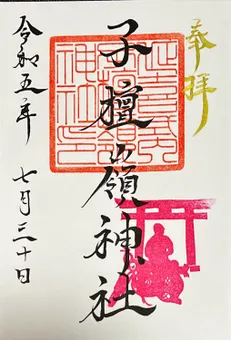 奉拝
子檀嶺神社
令和五年 七月三十日